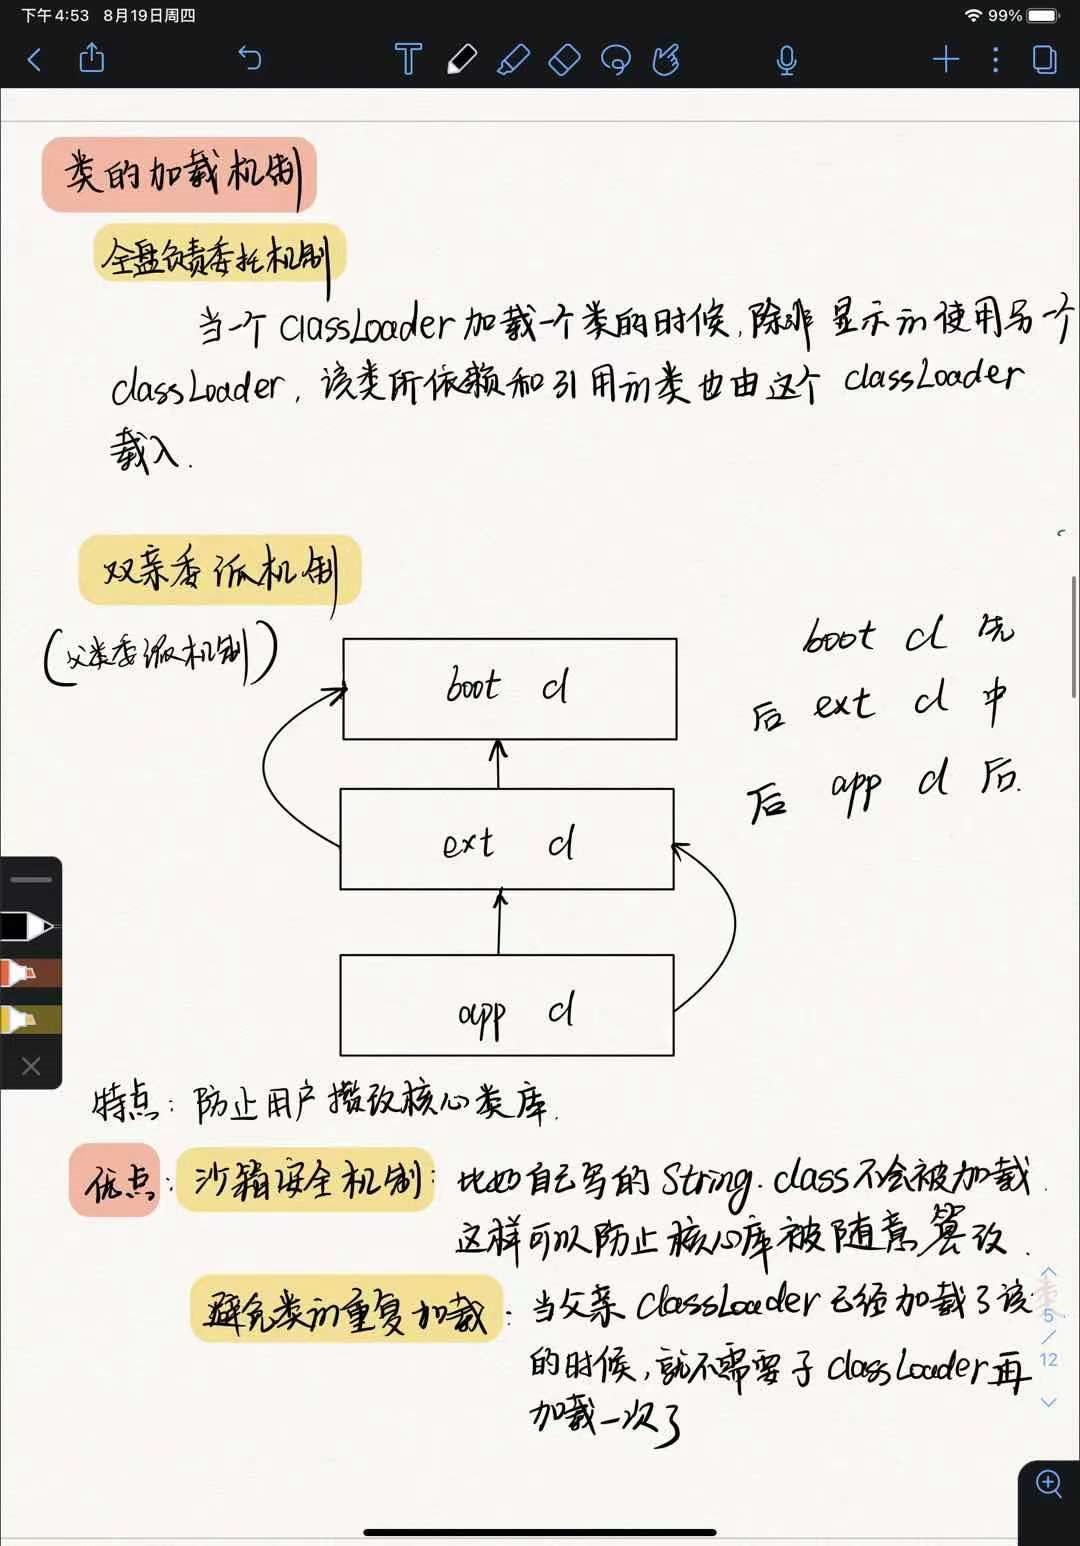 下午4:53 8月19日周四
99%
类的加载机制
全盘负责委托机制
当一个classLoader加载一个类的时候,除非显示的使用另一个
classLoader,该类所依赖和引用的类也由这个classLoader
载入.
双亲委派机制
(父类委派机制)
boot cl
ext cl
app cl
boot cl 先
后 ext cl 中
后 app cl 后.
特点:防止用户撺改核心类库.
优点:沙箱安全机制:比如自己写的String.class不会被加载.
这样可以防止核心库被随意篡改.
避免类的重复加载:当父亲classLoader已经加载了该类
的时候,就不需要子classLoader再
加载一次了
5
/
12